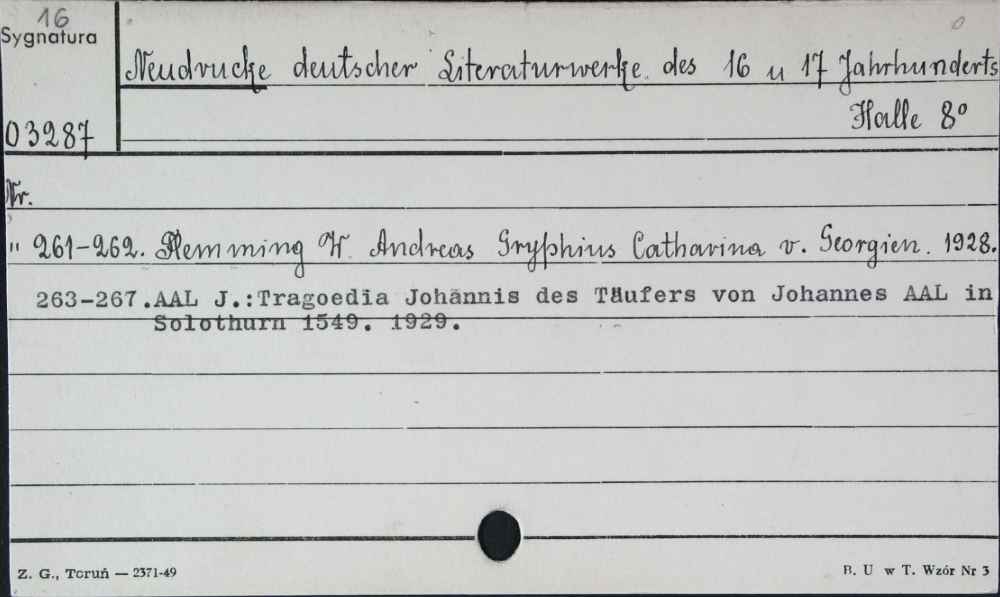 16
Sygnatura
Neudrucke deutscher Literaturwerke des 16 u 17 Jahrhunderts
Halle 8°
03287
Nr.
" 261-262. Flemming W. Andreas Gryphius Catharina v. Georgien. 1928.
263-267. AAL J.: Tragoedia Johannis des Täufers von Johannes AAL in
Solothurn 1549. 1929.
Z. G., Toruń — 2371-49
B. U w T. Wzór Nr 3